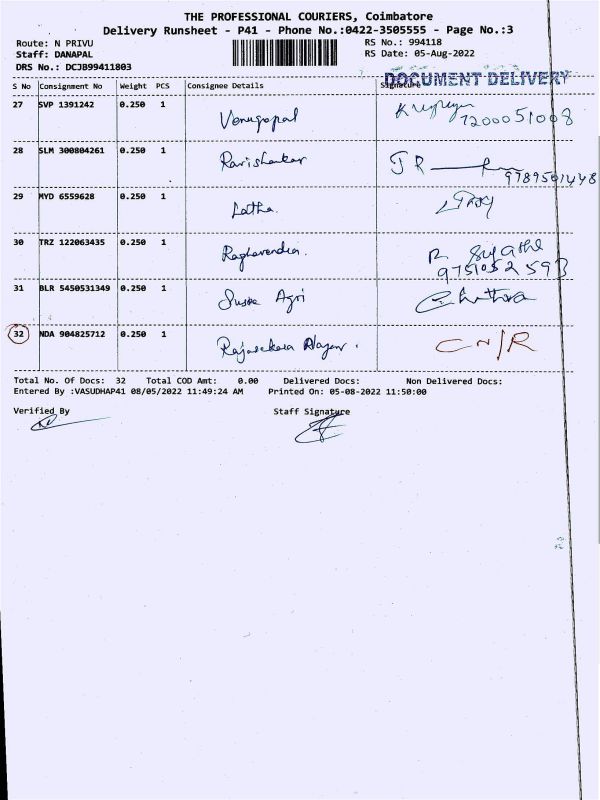 THE PROFESSIONAL COURIERS, Coimbatore
Delivery Runsheet - P41 - Phone No.:0422-3505555 - Page No.:3
Route: N PRIVU RS No.: 994118
Staff: DANAPAL RS Date: 05-Aug-2022
DRS No.: DCJB99411803
DOCUMENT DELIVERY
S No Consignment No Weight PCS Consignee Details Signature
27 SVP 1391242 0.250 1 Venugopal
7200051008
28 SLM 300804261 0.250 1 Ravishankar JR
9789561448
29 MYD 6559628 0.250 1 Latha.
30 TRZ 122063435 0.250 1 Raghavendra. R
9751052593
31 BLR 5450531349 0.250 1 Agri Chithra
32 NDA 904825712 0.250 1 Rajasekara CN/R
Total No. Of Docs: 32 Total COD Amt: 0.00 Delivered Docs: Non Delivered Docs:
Entered By :VASUDHAP41 08/05/2022 11:49:24 AM Printed On: 05-08-2022 11:50:00
Verified By Staff Signature